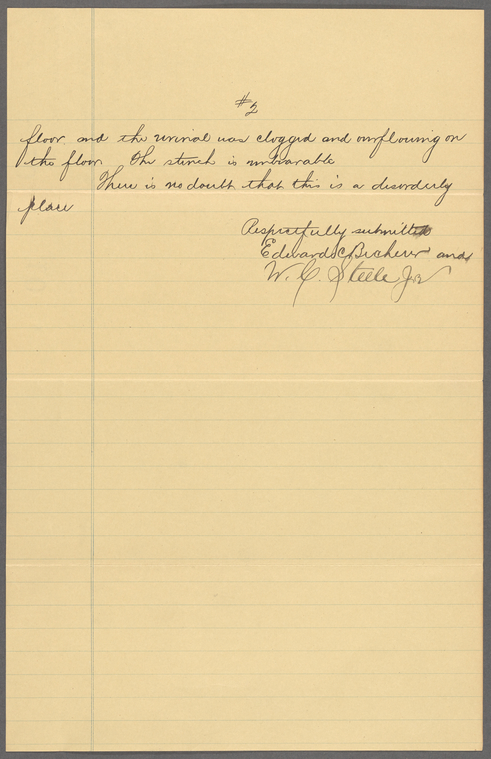 #2
floor and the urinal was clogged and overflowing on
the floor. The stench is unbearable
There is no doubt that this is a disorderly
place
Respectfully submitted
Edward C. Becherer and
W. C. Steele Jr